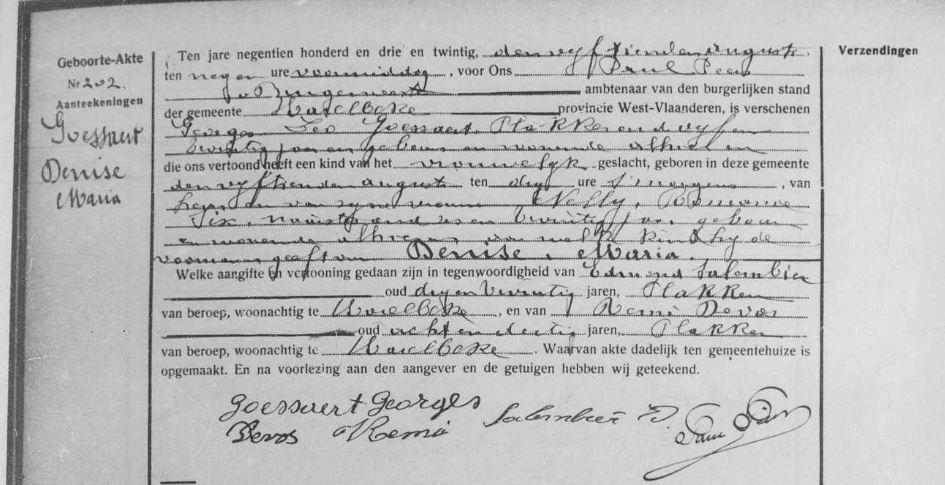 Geboorte-Akte
Nr 202.
Aanteekeningen
Goessaert
Denise
Maria
Verzendingen
Ten jare negentien honderd en drie en twintig, den vyftienden august
ten negen ure voormiddag, voor Ons Paul
Burgemeester ambtenaar van den burgerlijken stand
der gemeente Harelbeke provincie West-Vlaanderen, is verschenen
Georges Leo Goessaert, Plakker oud vyf en
twintig jaren geboren en wonende alhier en
die ons vertoond heeft een kind van het vrouwelyk geslacht, geboren in deze gemeente
den vyftienden august ten dry ure 's morgens, van
hem en van syne vrouw Nelly, Romanie
Six, oud en twintig jaar, geboren
en wonende alhier en van welk kind hy de
voornamen geeft van Denise, Maria.
Welke aangifte en vertooning gedaan zijn in tegenwoordigheid van Edmond Salembier
oud dry en twintig jaren, Plakker
van beroep, woonachtig te Harelbeke, en van Remi Devos
oud acht en dertig jaren, Plakker
van beroep, woonachtig te Harelbeke. Waarvan akte dadelijk ten gemeentehuize is
opgemaakt. En na voorlezing aan den aangever en de getuigen hebben wij geteekend.
Goessaert Georges Salembier E.
Devos Remi